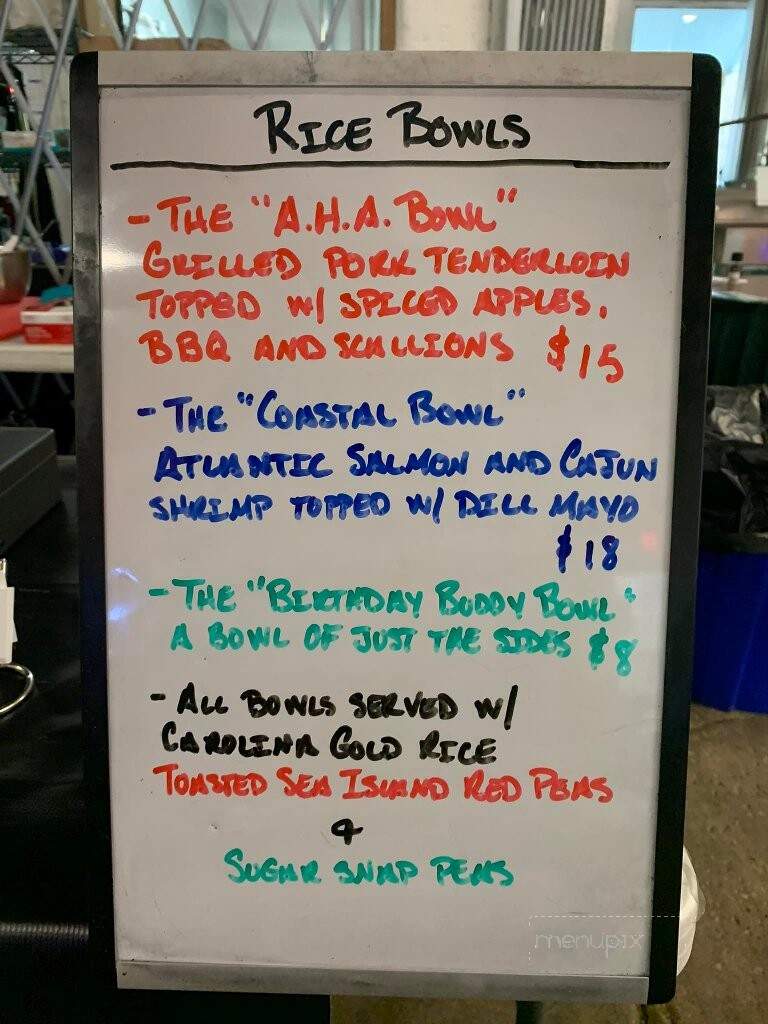 RICE BOWLS
- THE "A.H.A. BOWL"
GRILLED PORK TENDERLOIN
TOPPED W/ SPICED APPLES,
BBQ AND SCALLIONS $15
- THE "COASTAL BOWL"
ATLANTIC SALMON AND CAJUN
SHRIMP TOPPED W/ DILL MAYO
$18
- THE "BIRTHDAY BUDDY BOWL"
A BOWL OF JUST THE SIDES $8
- ALL BOWLS SERVED W/
CAROLINA GOLD RICE
TOASTED SEA ISLAND RED PEAS
&
SUGAR SNAP PEAS
menupix